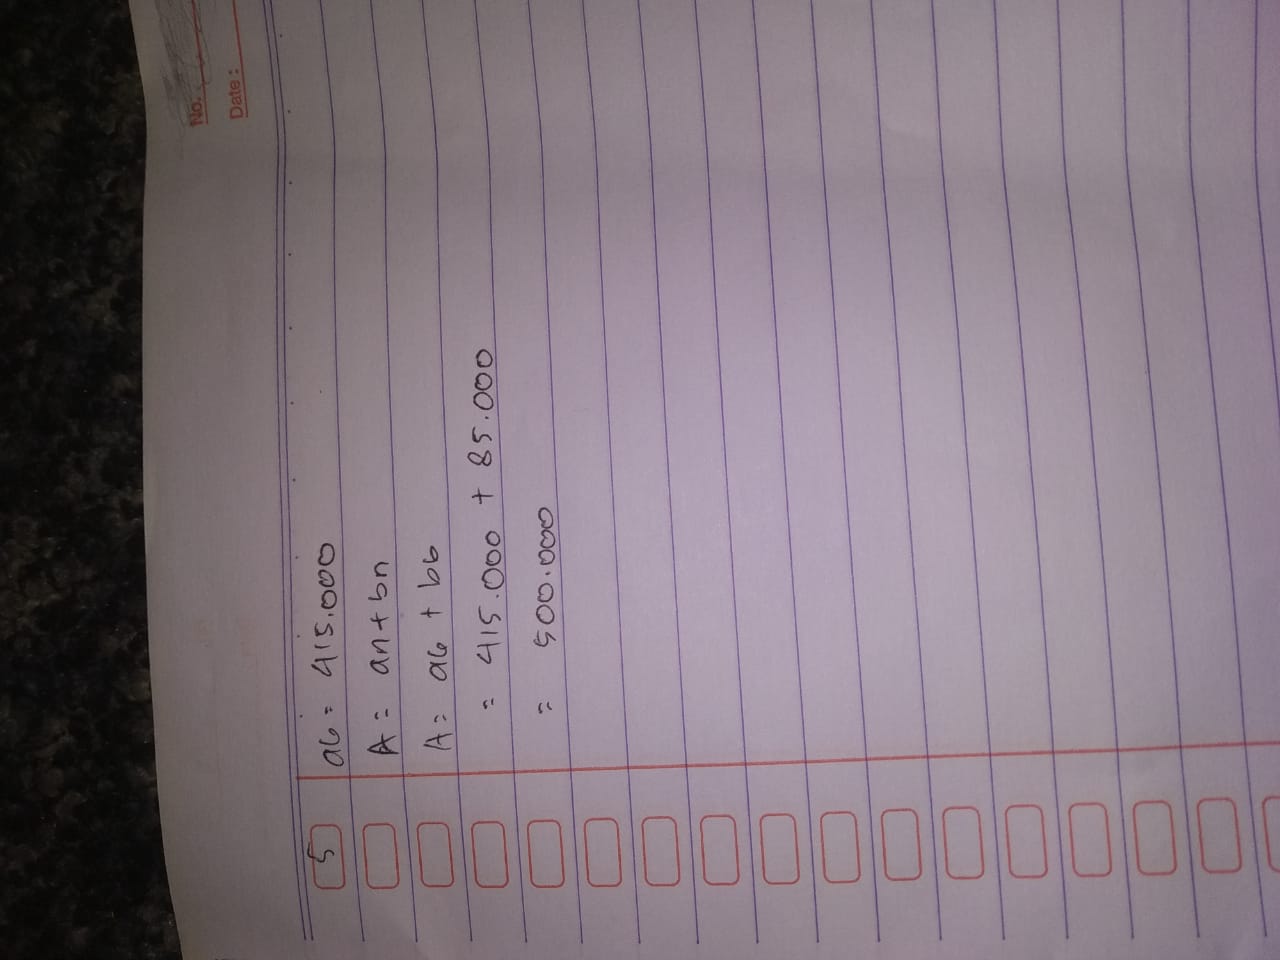 No.
Date :
5 a6 = 415.000
A = an + bn
A = a6 + b6
= 415.000 + 85.000
= 500.000